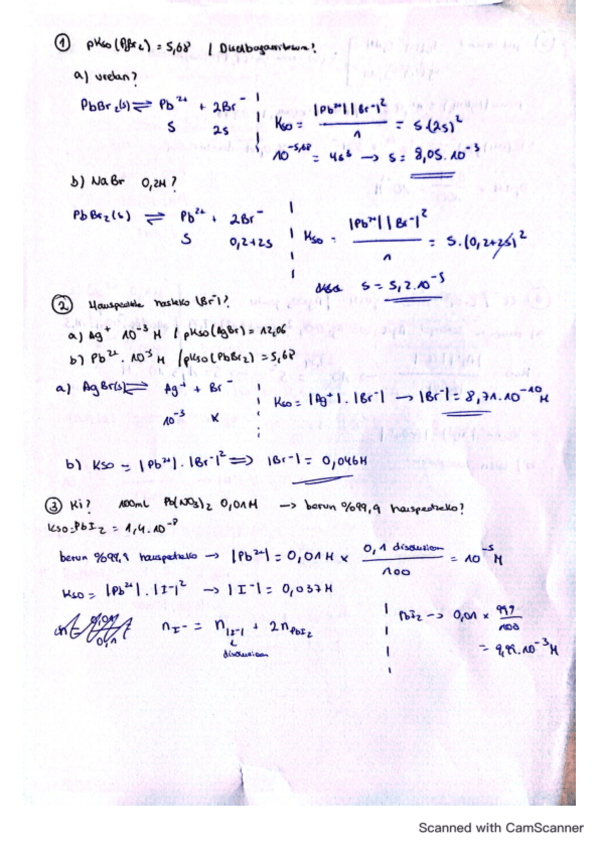 ① pKso (PbBr2) = 5,68 / Disolbagarritasuna?
a) uretan?
PbBr2(s) ⇌ Pb2+ + 2Br-
S 2S
Kso = |Pb2+| |Br-|2 / 1 = S.(2S)2
10-5,68 = 4S3 → S = 8,05.10-3
b) NaBr 0,2M?
PbBr2(s) ⇌ Pb2+ + 2Br-
S 0,2+2S
Kso = |Pb2+| |Br-|2 / 1 = S.(0,2+2S)2
S = 5,2.10-5
② Hauspeatzeko |Br-|?
a) Ag+ 10-3 M / pKso(AgBr) = 12,06
b) Pb2+ 10-3 M / pKso(PbBr2) = 5,68
a) AgBr(s) ⇌ Ag+ + Br-
10-3 x
Kso = |Ag+| . |Br-| → |Br-| = 8,71.10-10 M
b) Kso = |Pb2+| . |Br-|2 ⟹ |Br-| = 0,046M
③ Ki? 100mL Pb(NO3)2 0,01M → berun %99,9 hauspeatzeko?
Kso PbI2 = 1,4.10-8
berun %99,9 hauspeatzeko → |Pb2+| = 0,01M x 0,1 disoluzioan / 100 = 10-5 M
Kso = |Pb2+| . |I-|2 → |I-| = 0,037M
nI- = n|I-| + 2nPbI2
disoluzioan
PbI2 → 0,01 x 99,9 / 100
= 9,99.10-3 M
Scanned with CamScanner